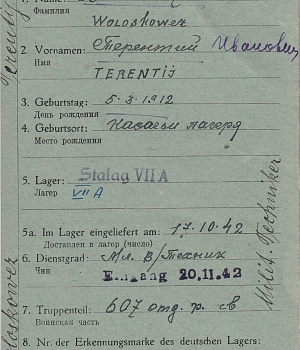 Фамилия
Woloskower
2. Vornamen: Терентий Иванович
Имя
TERENTIJ
3. Geburtstag: 5.3.1912
День рождения
4. Geburtsort:
Место рождения
5. Lager: Stalag VII A
Лагер VII A
5a. Im Lager eingeliefert am: 17.10.42
Доставлен в лагер (число)
6. Dienstgrad: Мл. В/Техник
Чин Eingang 20.11.42
7. Truppenteil: 607 отд. р. св
Воинская часть
8. Nr. der Erkennungsmarke des deutschen Lagers:
Terentij
Woloskower
Milit. Techniker